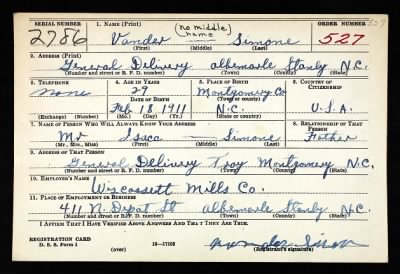 SERIAL NUMBER 1. NAME (Print) ORDER NUMBER
(no middle name)
2786 Vander Simone 527
(First) (Middle) (Last)
2. ADDRESS (Print)
General Delivery albemarle Stanly N.C.
(Number and street or R. F. D. number) (Town) (County) (State)
3. TELEPHONE 4. AGE IN YEARS 5. PLACE OF BIRTH 6. COUNTRY OF CITIZENSHIP
none 29 Montgomery Co
DATE OF BIRTH (Town or county)
Feb 18 1911 N.C. U.S.A.
(Exchange) (Number) (Mo.) (Day) (Yr.) (State or country)
7. NAME OF PERSON WHO WILL ALWAYS KNOW YOUR ADDRESS 8. RELATIONSHIP OF THAT PERSON
Mr Isacc Simone Father
(Mr., Mrs., Miss) (First) (Middle) (Last)
9. ADDRESS OF THAT PERSON
General Delivery Troy Montgomery N.C.
(Number and street or R. F. D. number) (Town) (County) (State)
10. EMPLOYER'S NAME
Wiscassett Mills Co.
11. PLACE OF EMPLOYMENT OR BUSINESS
411 N. Depot St albemarle Stanly N.C.
(Number and street or R. F. D. number) (Town) (County) (State)
I AFFIRM THAT I HAVE VERIFIED ABOVE ANSWERS AND THAT THEY ARE TRUE.
REGISTRATION CARD
D. S. S. Form 1 (over) 16—17105 (Registrant's signature)